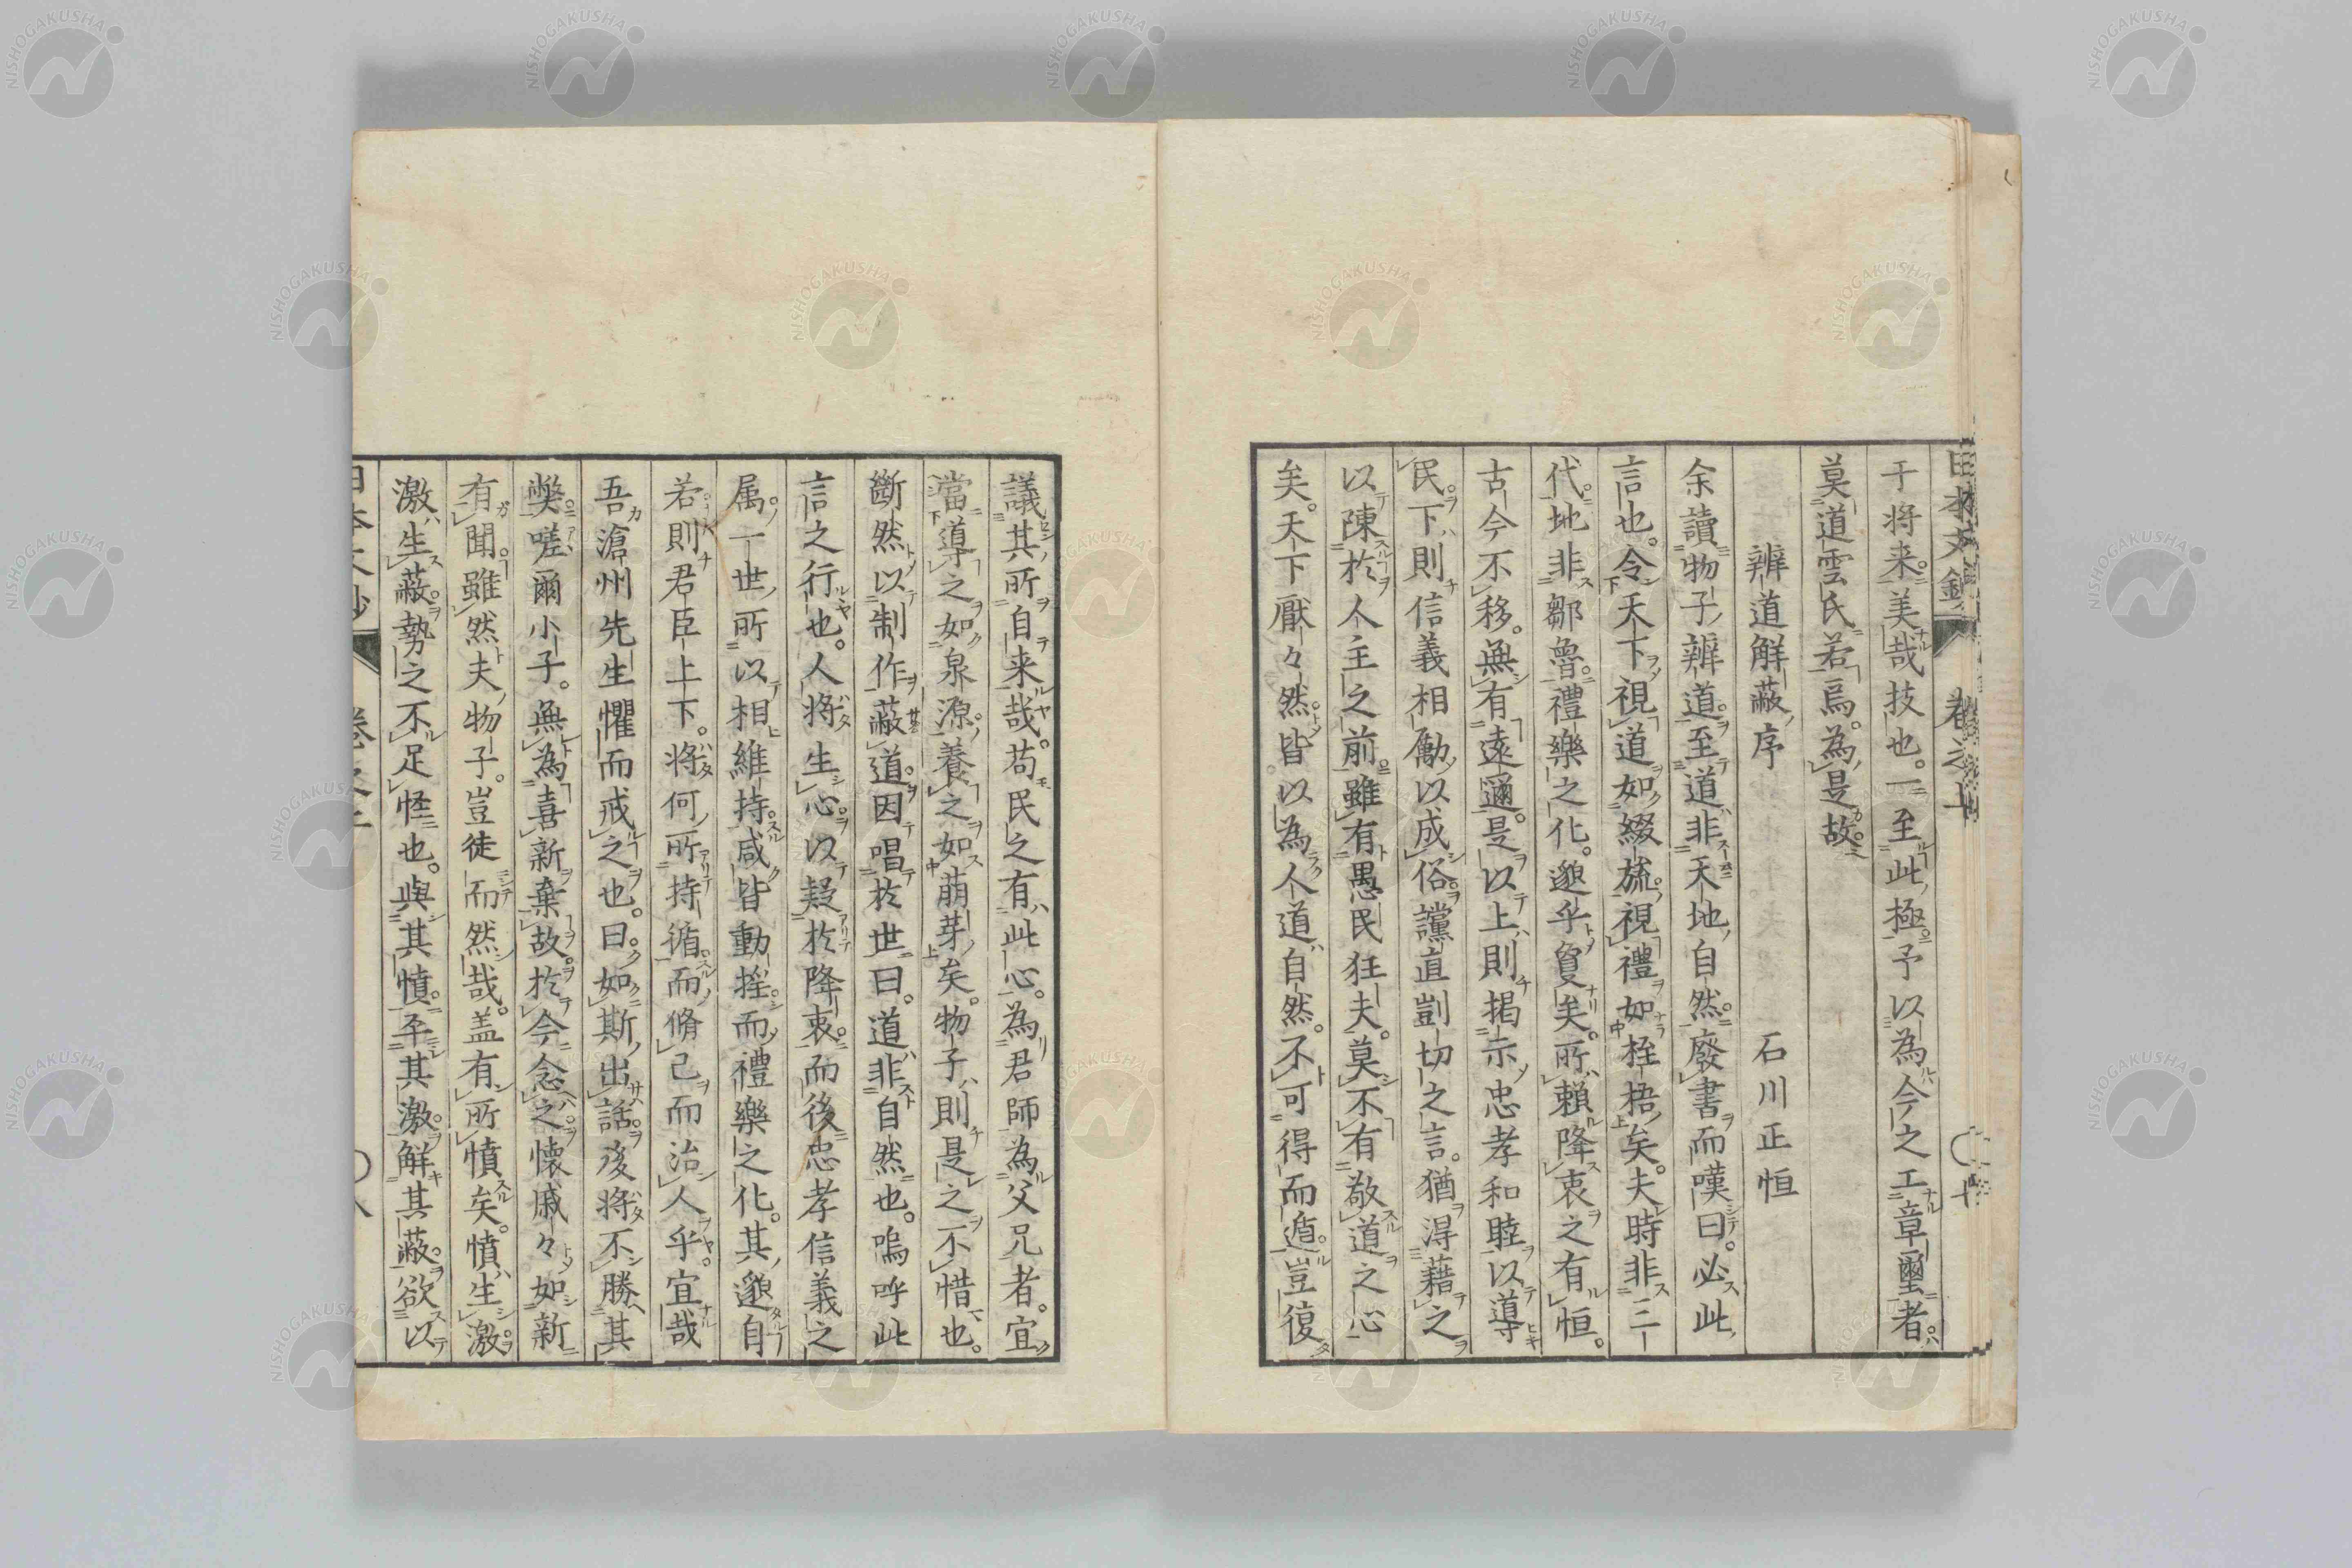 于將来美哉技也一至此極予以為今之工章璽者
莫道雲氏若焉為是故
辨道解蔽序 石川正恒
余讀物子辨道至道非天地自然廢書而嘆曰必此
言也令天下視道如綴旒視禮如桎梏矣夫時非三
代地非鄒魯禮樂之化邈乎敻矣所賴降衷之有恒
古今不移無有遠邇是以上則揭示忠孝和睦以導
民下則信義相勵以成俗讜直剴切之言猶得藉之
以陳於人主之前雖有愚民狂夫莫不有敬道之心
矣天下厭々然皆以為人道自然不可得而遁豈復
議其所自来哉苟民之有此心為君師為父兄者宜
當導之如泉源養之如萠芽矣物子則是之不惜也
斷然以制作蔽道因唱於世曰道非自然也嗚呼此
言之行也人將生心以疑於降衷而後忠孝信義之
属一世所以相維持咸皆動搖而禮樂之化其邈自
若則君臣上下將何所持循而脩己而治人乎宜哉
吾滄州先生懼而戒之也曰如斯出話後將不勝其
獘嗟爾小子無為喜新棄故於今念之懐戚々如新
有聞雖然夫物子豈徒而然哉盖有所憤矣憤生激
激生蔽勢之不足怪也與其憤至其激解其蔽欲以
NISHOGAKUSHA